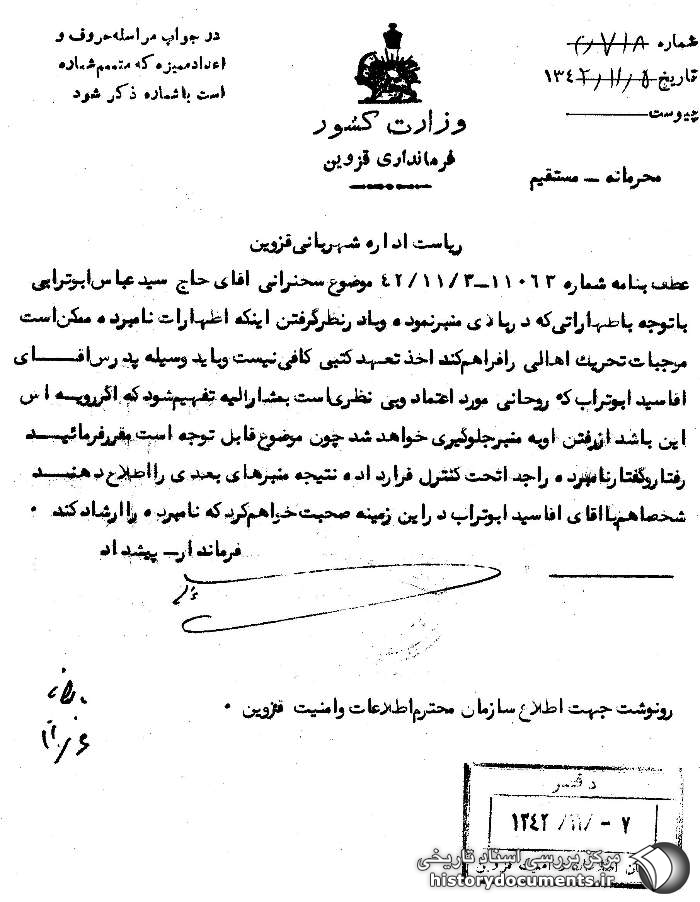 در جواب مراسله حروف و
اعداد ممیزه که متمم شماره
است با شماره ذکر شود
شماره
تاریخ ۱۳۴۲/۱۱/۵
پیوست
وزارت کشور
فرمانداری قزوین
محرمانه – مستقیم
ریاست اداره شهربانی قزوین
عطف بنامه شماره ۱۱۰۶۳–۴۲/۱۱/۳ موضوع سخنرانی اقای حاج سید عباس ابوترابی
با توجه باظهاراتی که در بادی منبر نموده و با در نظر گرفتن اینکه اظهارات نامبرده ممکن است
موجبات تحریک اهالی را فراهم کند اخذ تعهد کتبی کافی نیست و باید وسیله پدرس اقــای
اقاسید ابوتراب که روحانی مورد اعتماد وبی نظری است بمشارالیه تفهیم شود که اگر رویــه اش
این باشد از رفتن او به منبر جلوگیری خواهد شد چون موضوع قابل توجه است مقرر فرمائیــد
رفتار و گفتار نامبرده را جدا تحت کنترل قرار داده نتیجه منبرهای بعدی را اطلاع دهنــد
شخصا هم با اقای اقا سید ابوتراب در این زمینه صحبت خواهم کرد که نامبرده را ارشاد کند .
فرماندار – پیشداد
رونوشت جهت اطلاع سازمان محترم اطلاعات وامنیت قزوین .
دفتر
۱۳۴۲/۱۱/-۷
مرکز بررسی اسناد تاریخی
historydocuments.ir